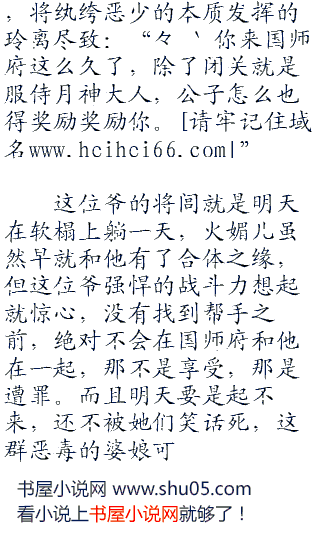 ，将纨绔恶少的本质发挥的
玲离尽致：“々 丶 你来国师
府这么久了，除了闭关就是
服侍月神大人，公子怎么也
得奖励奖励你。[请牢记住域
名www.hcihci66.com|”
这位爷的将闾就是明天
在软榻上躺一天，火媚儿虽
然早就和他有了合体之缘，
但这位爷强悍的战斗力想起
就惊心，没有找到帮手之
前，绝对不会在国师府和他
在一起，那不是享受，那是
遭罪。而且明天要是起不
来，还不被她们笑话死，这
群恶毒的婆娘可
书屋小说网 www.shu05.com
看小说上书屋小说网就够了！